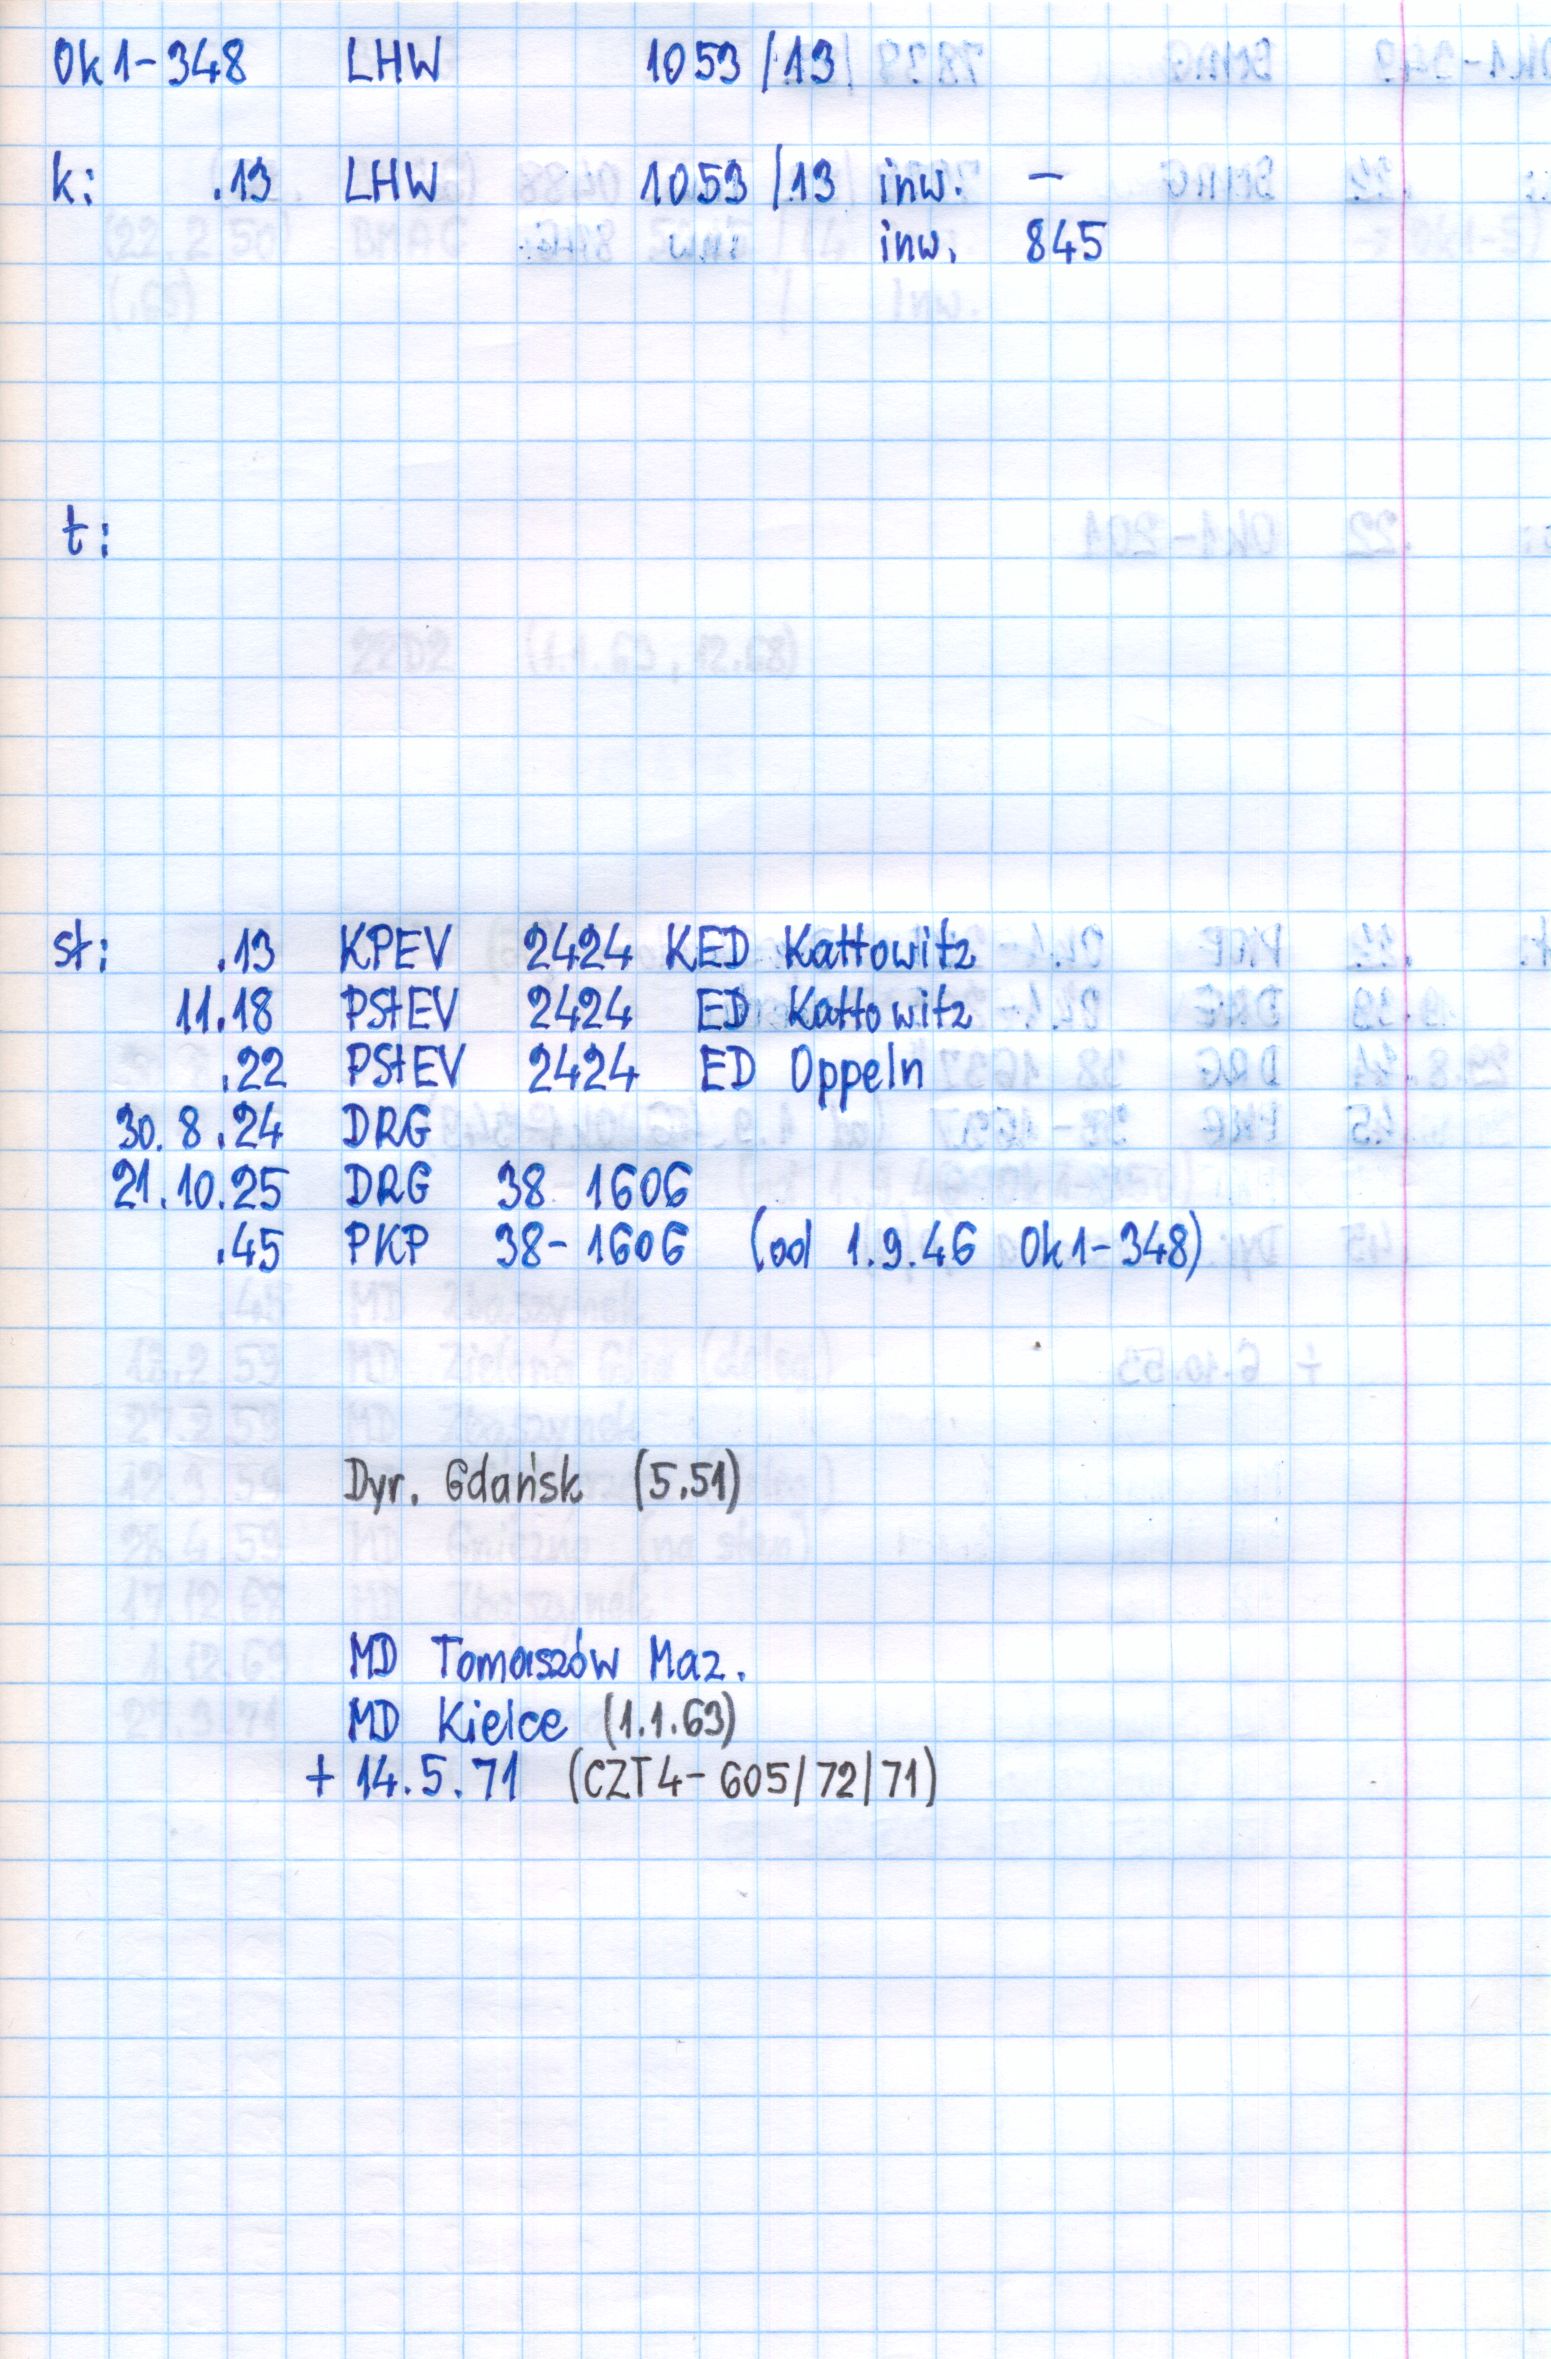 Ok1-348 LHW 1053/13
k: .13 LHW 1053/13 inw. –
inw. 845
t:
st: .13 KPEV 2424 KED Kattowitz
11.18 PStEV 2424 ED Kattowitz
.22 PStEV 2424 ED Oppeln
30.8.24 DRG
21.10.25 DRG 38 1606
.45 PKP 38-1606 (od 1.9.46 Ok1-348)
Dyr. Gdańsk (5.51)
MD Tomaszów Maz.
MD Kielce (1.1.63)
+ 14.5.71 (CZT4-605/72/71)